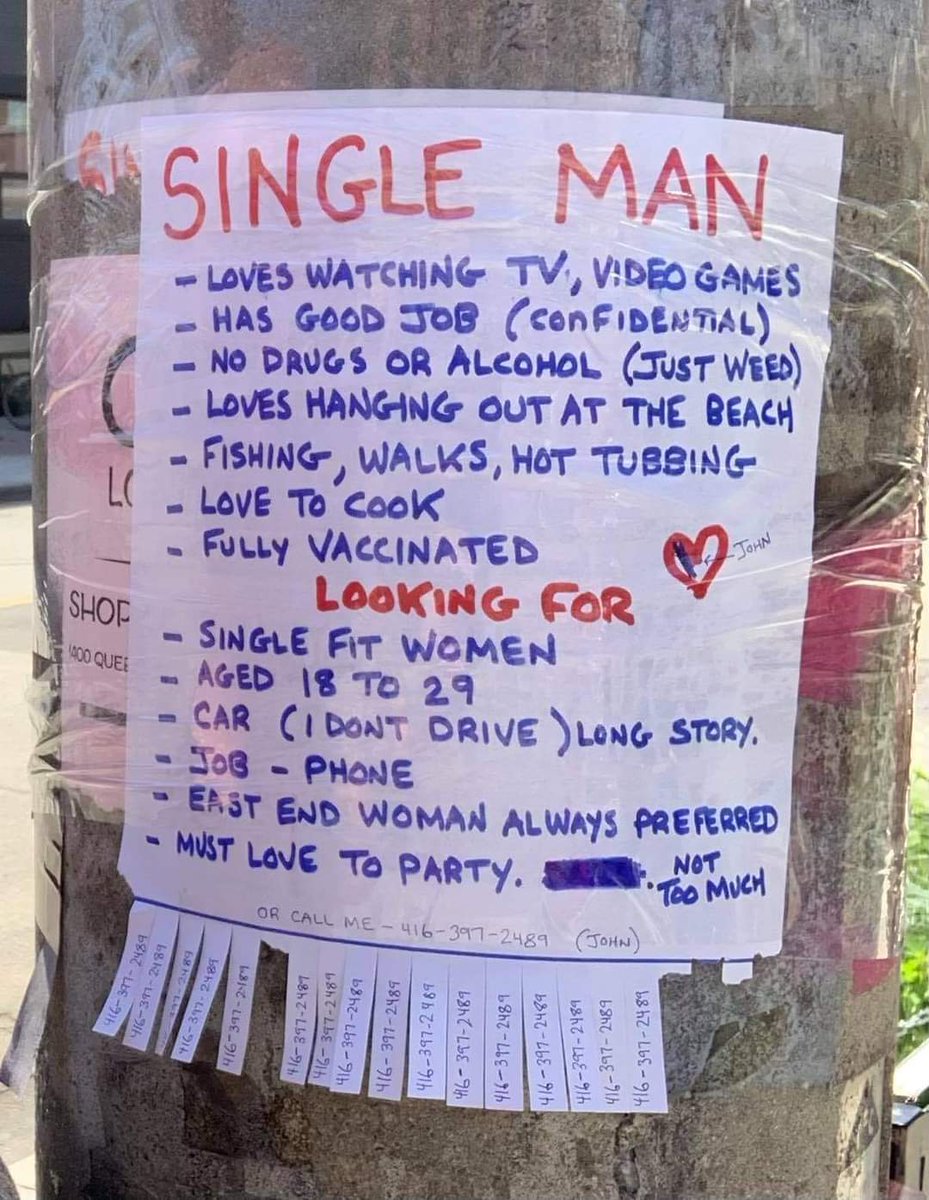 SINGLE MAN
- LOVES WATCHING TV, VIDEO GAMES
- HAS GOOD JOB (CONFIDENTIAL)
- NO DRUGS OR ALCOHOL (JUST WEED)
- LOVES HANGING OUT AT THE BEACH
- FISHING, WALKS, HOT TUBBING
- LOVE TO COOK
- FULLY VACCINATED
JOHN
LOOKING FOR
- SINGLE FIT WOMEN
- AGED 18 TO 29
- CAR (I DONT DRIVE) LONG STORY.
- JOB - PHONE
- EAST END WOMAN ALWAYS PREFERRED
- MUST LOVE TO PARTY. . NOT TOO MUCH
OR CALL ME - 416-397-2489 (JOHN)
416-397-2489
416-397-2489
416-397-2489
416-397-2489
416-397-2489
416-397-2489
416-397-2489
416-397-2489
416-397-2489
416-397-2489
416-397-2489
416-397-2489
416-397-2489
416-397-2489
416-397-2489
416-397-2489
SHOP